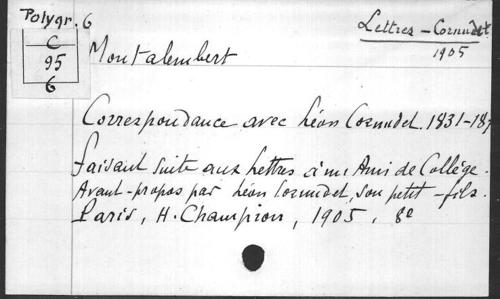 Polygr. 6
C
95
6
Lettres – Cornudet
1905
Montalembert
Correspondance avec Léon Cornudet. 1831-187
faisant suite aux Lettres à un Ami de Collège.
Avant-propos par Léon Cornudet, son petit-fils.
Paris, H. Champion, 1905, 8º